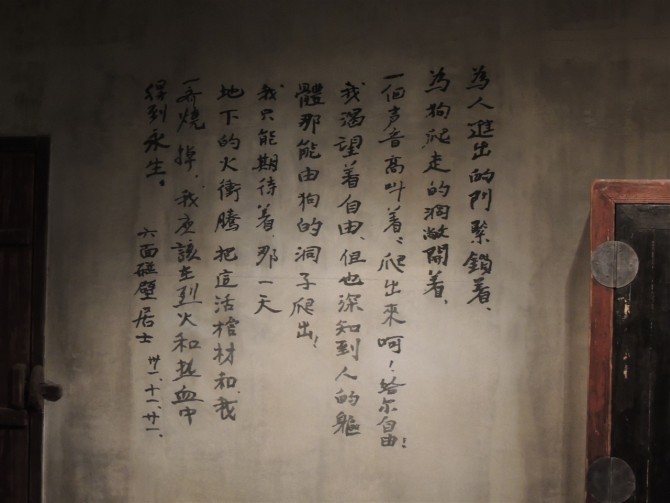 為人進出的門緊鎖着、
為狗爬走的洞敞開着、
一個声音高叫着:爬出來呵!給尔自由!
我渴望着自由、但也深知到人的軀
體那能由狗的洞子爬出!
我只能期待着、那一天
地下的火衝騰、把這活棺材和我
一齊燒掉、我应該在烈火和热血中
得到永生。
六面碰壁居士
卅一、十一、廿一、